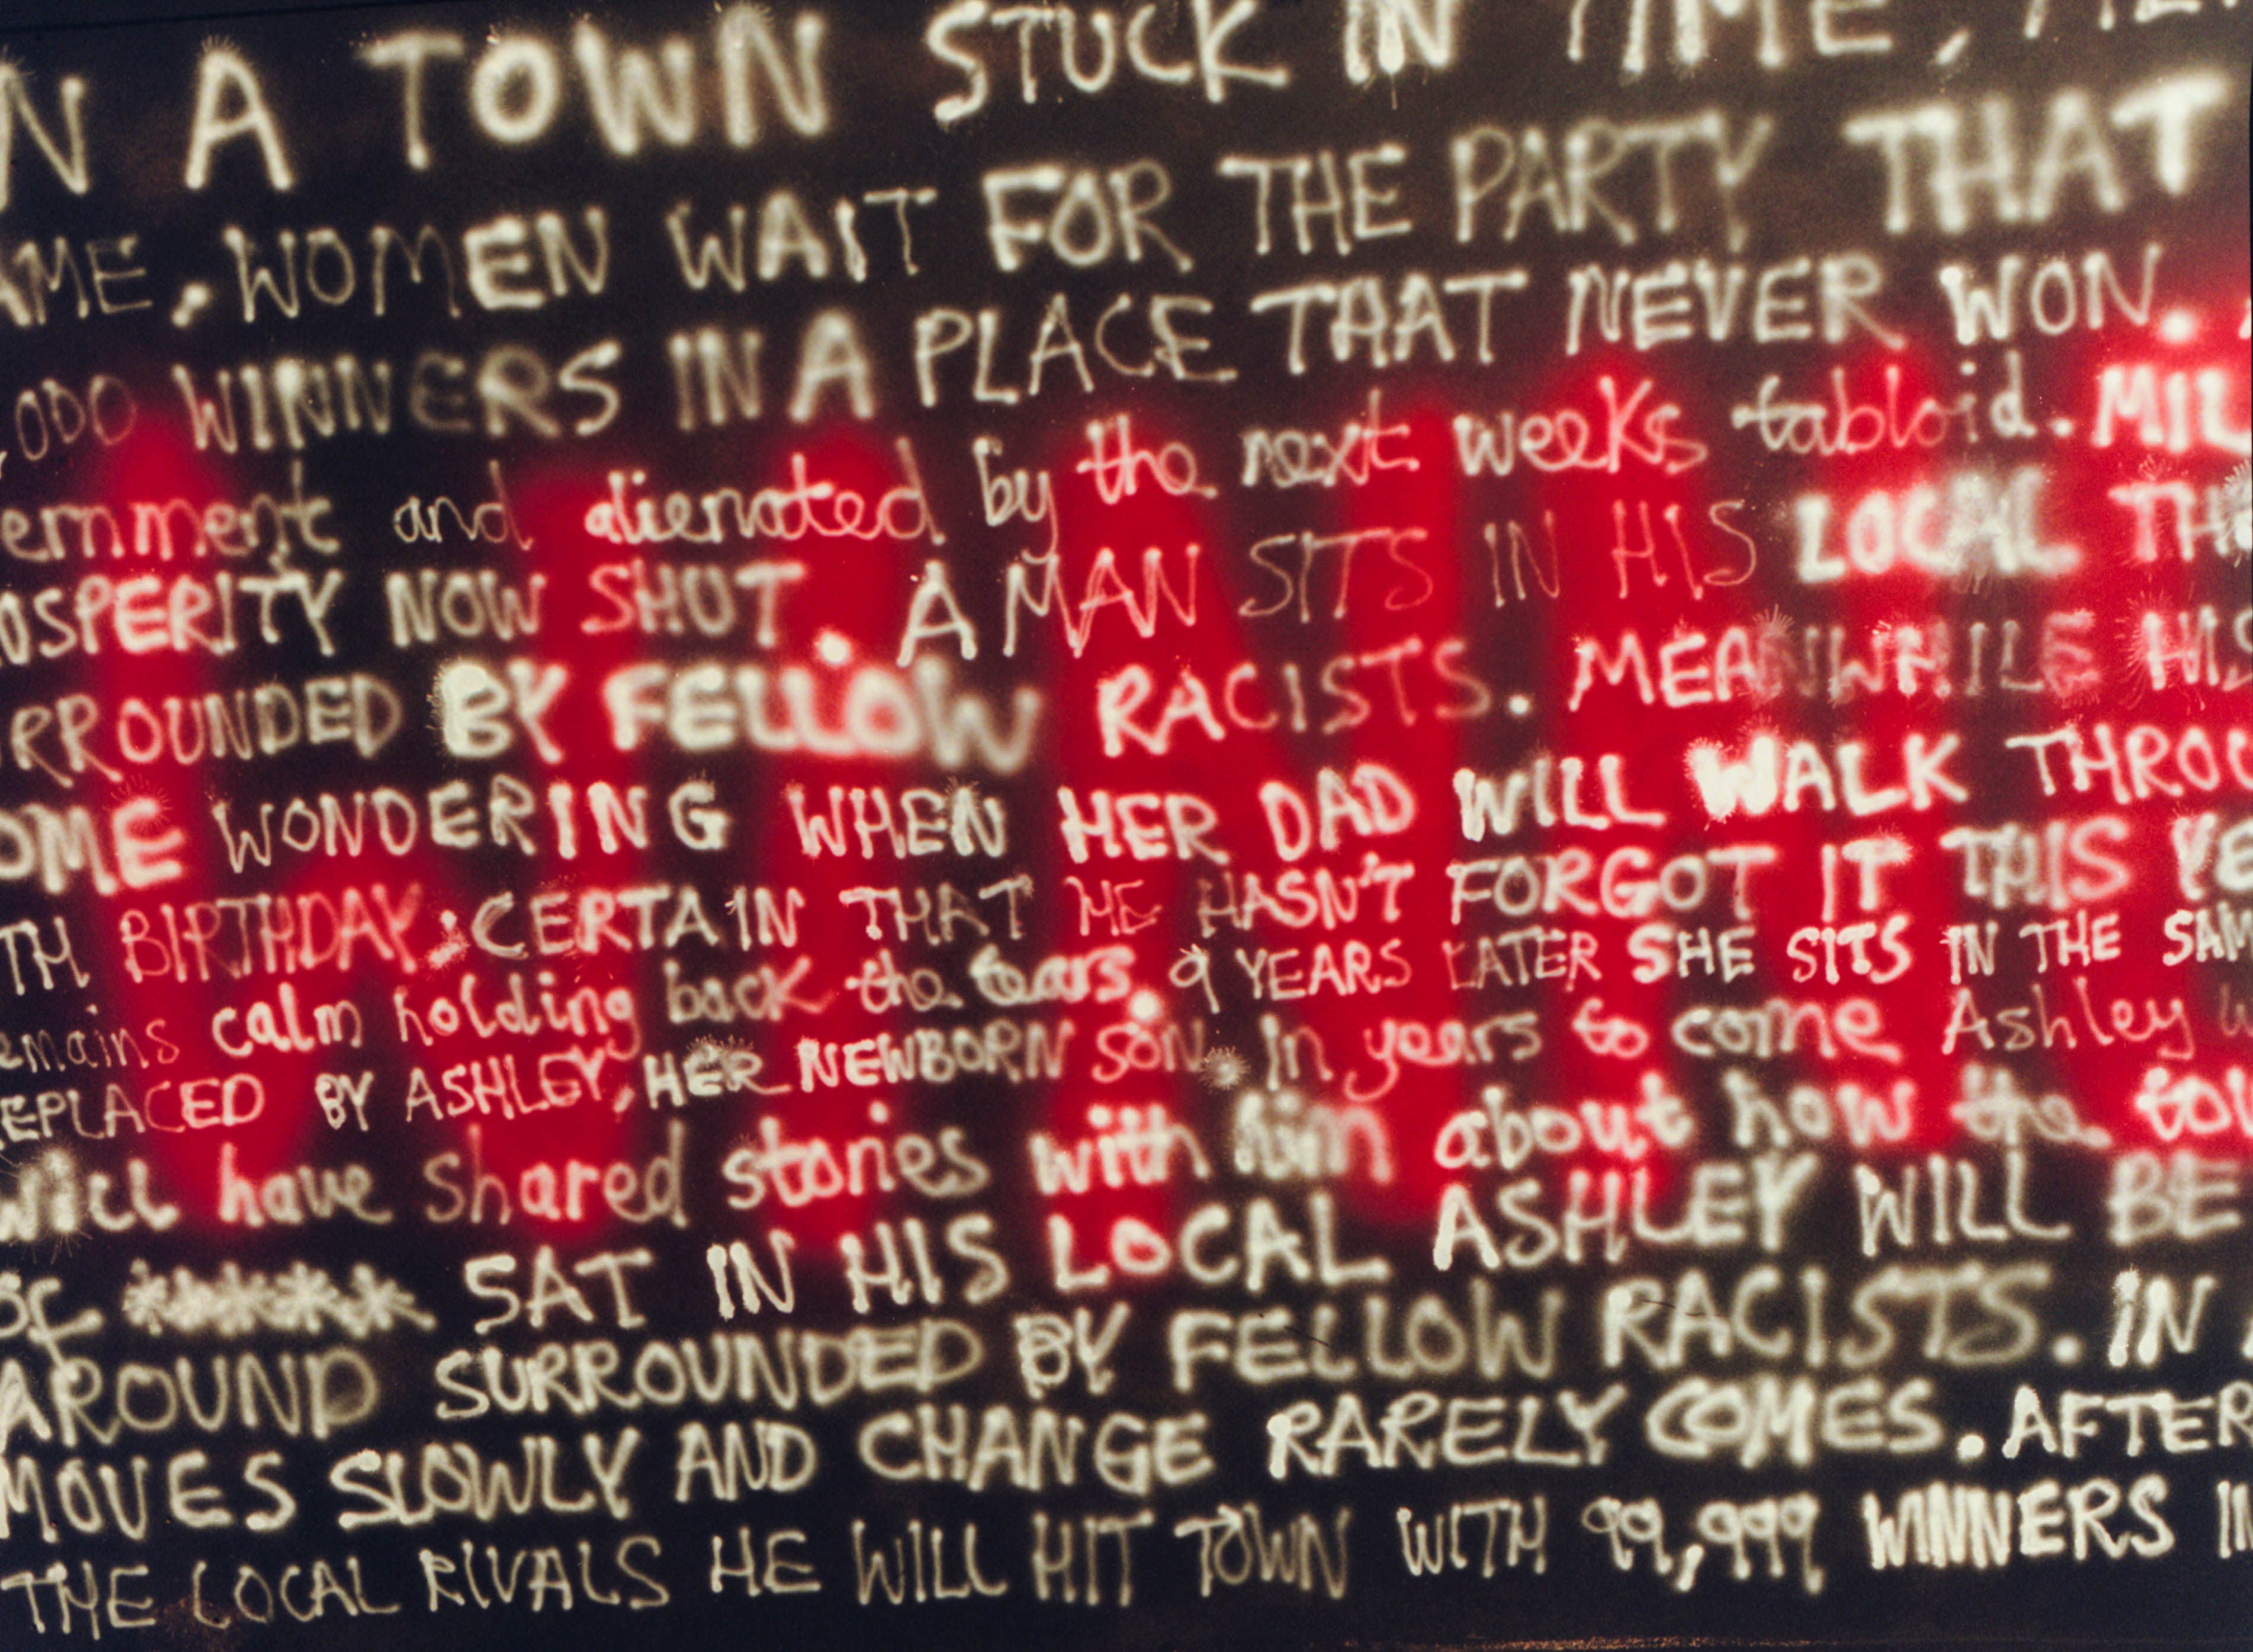 N A TOWN STUCK IN TIME,
AME, WOMEN WAIT FOR THE PARTY THAT
,000 WINNERS IN A PLACE THAT NEVER WON.
ernment and alienated by the next weeks tabloid. MIL
OSPERITY NOW SHUT. A MAN SITS IN HIS LOCAL TH
RROUNDED BY FELLOW RACISTS. MEANWHILE HIS
OME WONDERING WHEN HER DAD WILL WALK THROU
TH BIRTHDAY, CERTAIN THAT HE HASN'T FORGOT IT THIS YE
emains calm holding back the tears. 9 YEARS LATER SHE SITS IN THE SAM
EPLACED BY ASHLEY, HER NEWBORN SON. In years to come Ashley w
will have shared stories with him about how the tow
of ***** SAT IN HIS LOCAL ASHLEY WILL BE
AROUND SURROUNDED BY FELLOW RACISTS. IN
MOVES SLOWLY AND CHANGE RARELY COMES. AFTER
THE LOCAL RIVALS HE WILL HIT TOWN WITH 99,999 WINNERS IN